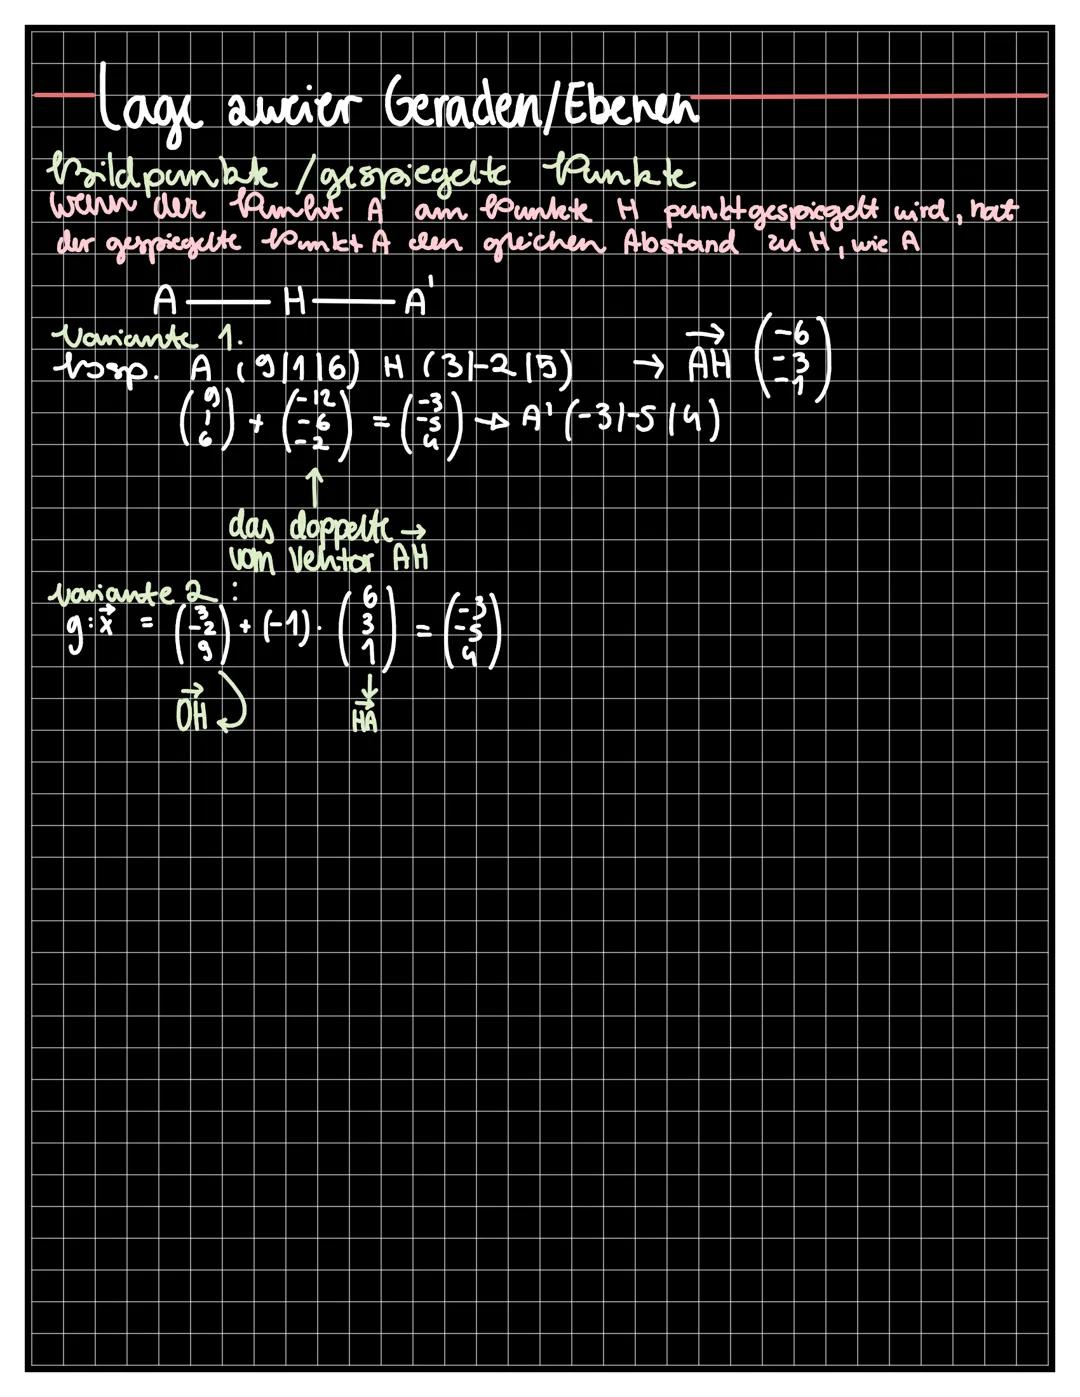 Lage zweier Geraden/Ebenen
Bildpunkte / gespiegelte Punkte
wenn der Punkt A am Punkte H punktgespiegelt wird, hat
der gespiegelte Punkt A den gleichen Abstand zu H, wie A
A — H — A'
Variante 1.
bsp. A (9|1|6) H (3|-2|5) → \overrightarrow{AH} \begin{pmatrix} -6 \\ -3 \\ -1 \end{pmatrix}
\begin{pmatrix} 9 \\ 1 \\ 6 \end{pmatrix} + \begin{pmatrix} -12 \\ -6 \\ -2 \end{pmatrix} = \begin{pmatrix} -3 \\ -5 \\ 4 \end{pmatrix} → A' (-3|-5|4)
↑
das doppelte
vom Vektor \overrightarrow{AH}
Variante 2 :
g: \vec{x} = \begin{pmatrix} 3 \\ -2 \\ 9 \end{pmatrix} + (-1) · \begin{pmatrix} 6 \\ 3 \\ 1 \end{pmatrix} = \begin{pmatrix} -3 \\ -5 \\ 4 \end{pmatrix}
\overrightarrow{OH} ↓ \overrightarrow{HA}